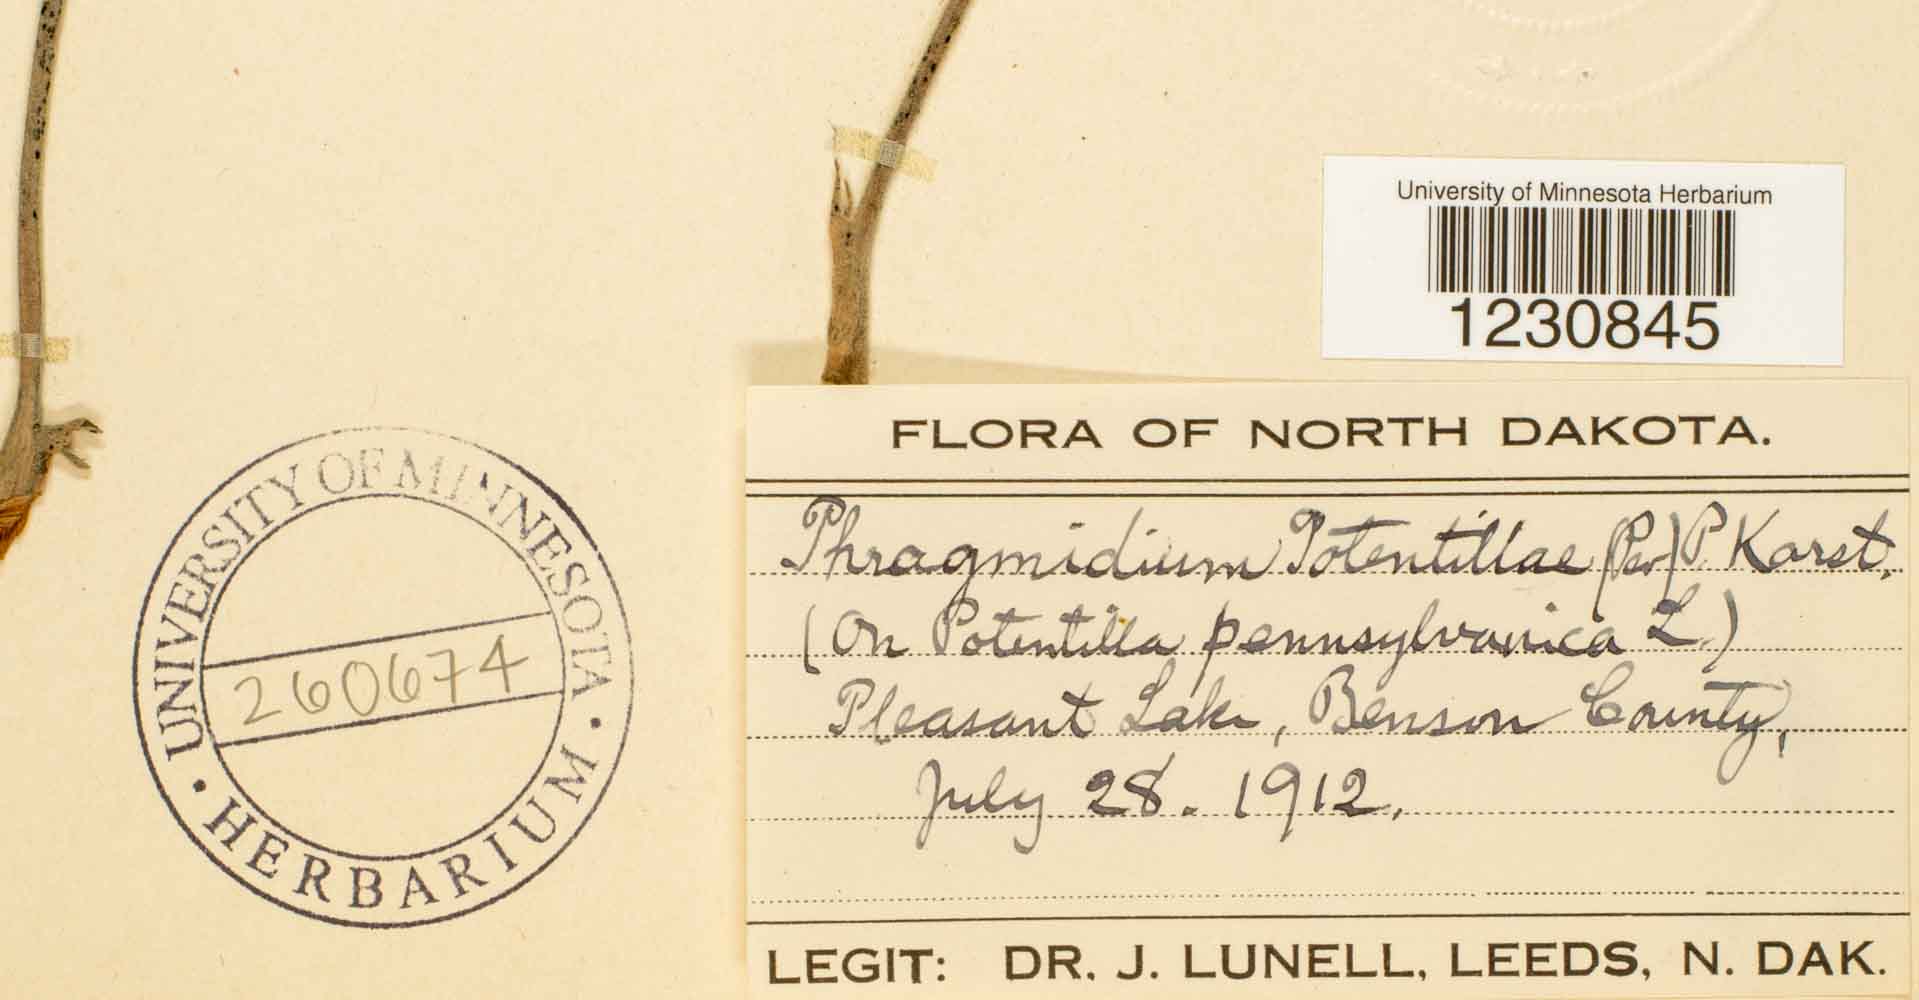 University of Minnesota Herbarium
1230845
FLORA OF NORTH DAKOTA.
Phragmidium Potentillae (Per) P. Karst.
(On Potentilla pennsylvanica L.)
Pleasant Lake, Benson County,
July 28. 1912.
LEGIT: DR. J. LUNELL, LEEDS, N. DAK.
UNIVERSITY OF MINNESOTA
260674
· HERBARIUM ·